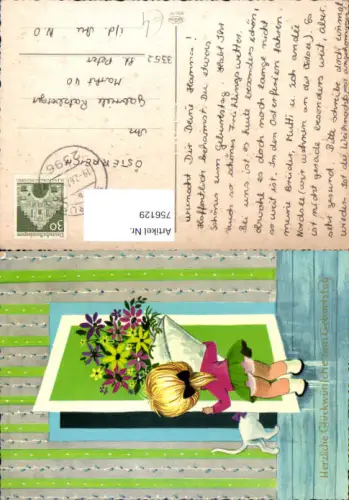 wünscht Dir Deine Hanna!
Hoffentlich bekommst Du etwas
Schönes zum Geburtstag. Habt Ihr
auch so schönes Frühlingswetter.
Bei uns ist es heute besonders schön,
obwohl es doch noch lange nicht
so weit ist. In den Osterferien fahren
meine Brüder, Mutti u. ich an die
Nordsee (wir wohnen an der Ostsee). Es
ist nicht gerade besonders weit, aber
sehr gesund. Bitte schreibe doch einmal
wieder. Ist die Weihnachts
Gabriele
Markt 40
3352 St. Peter
i/d. Au N.Ö.
ÖSTERREICH
30
Artikel Nr.
756129
Herzliche Glückwünsche zum Geburtstag